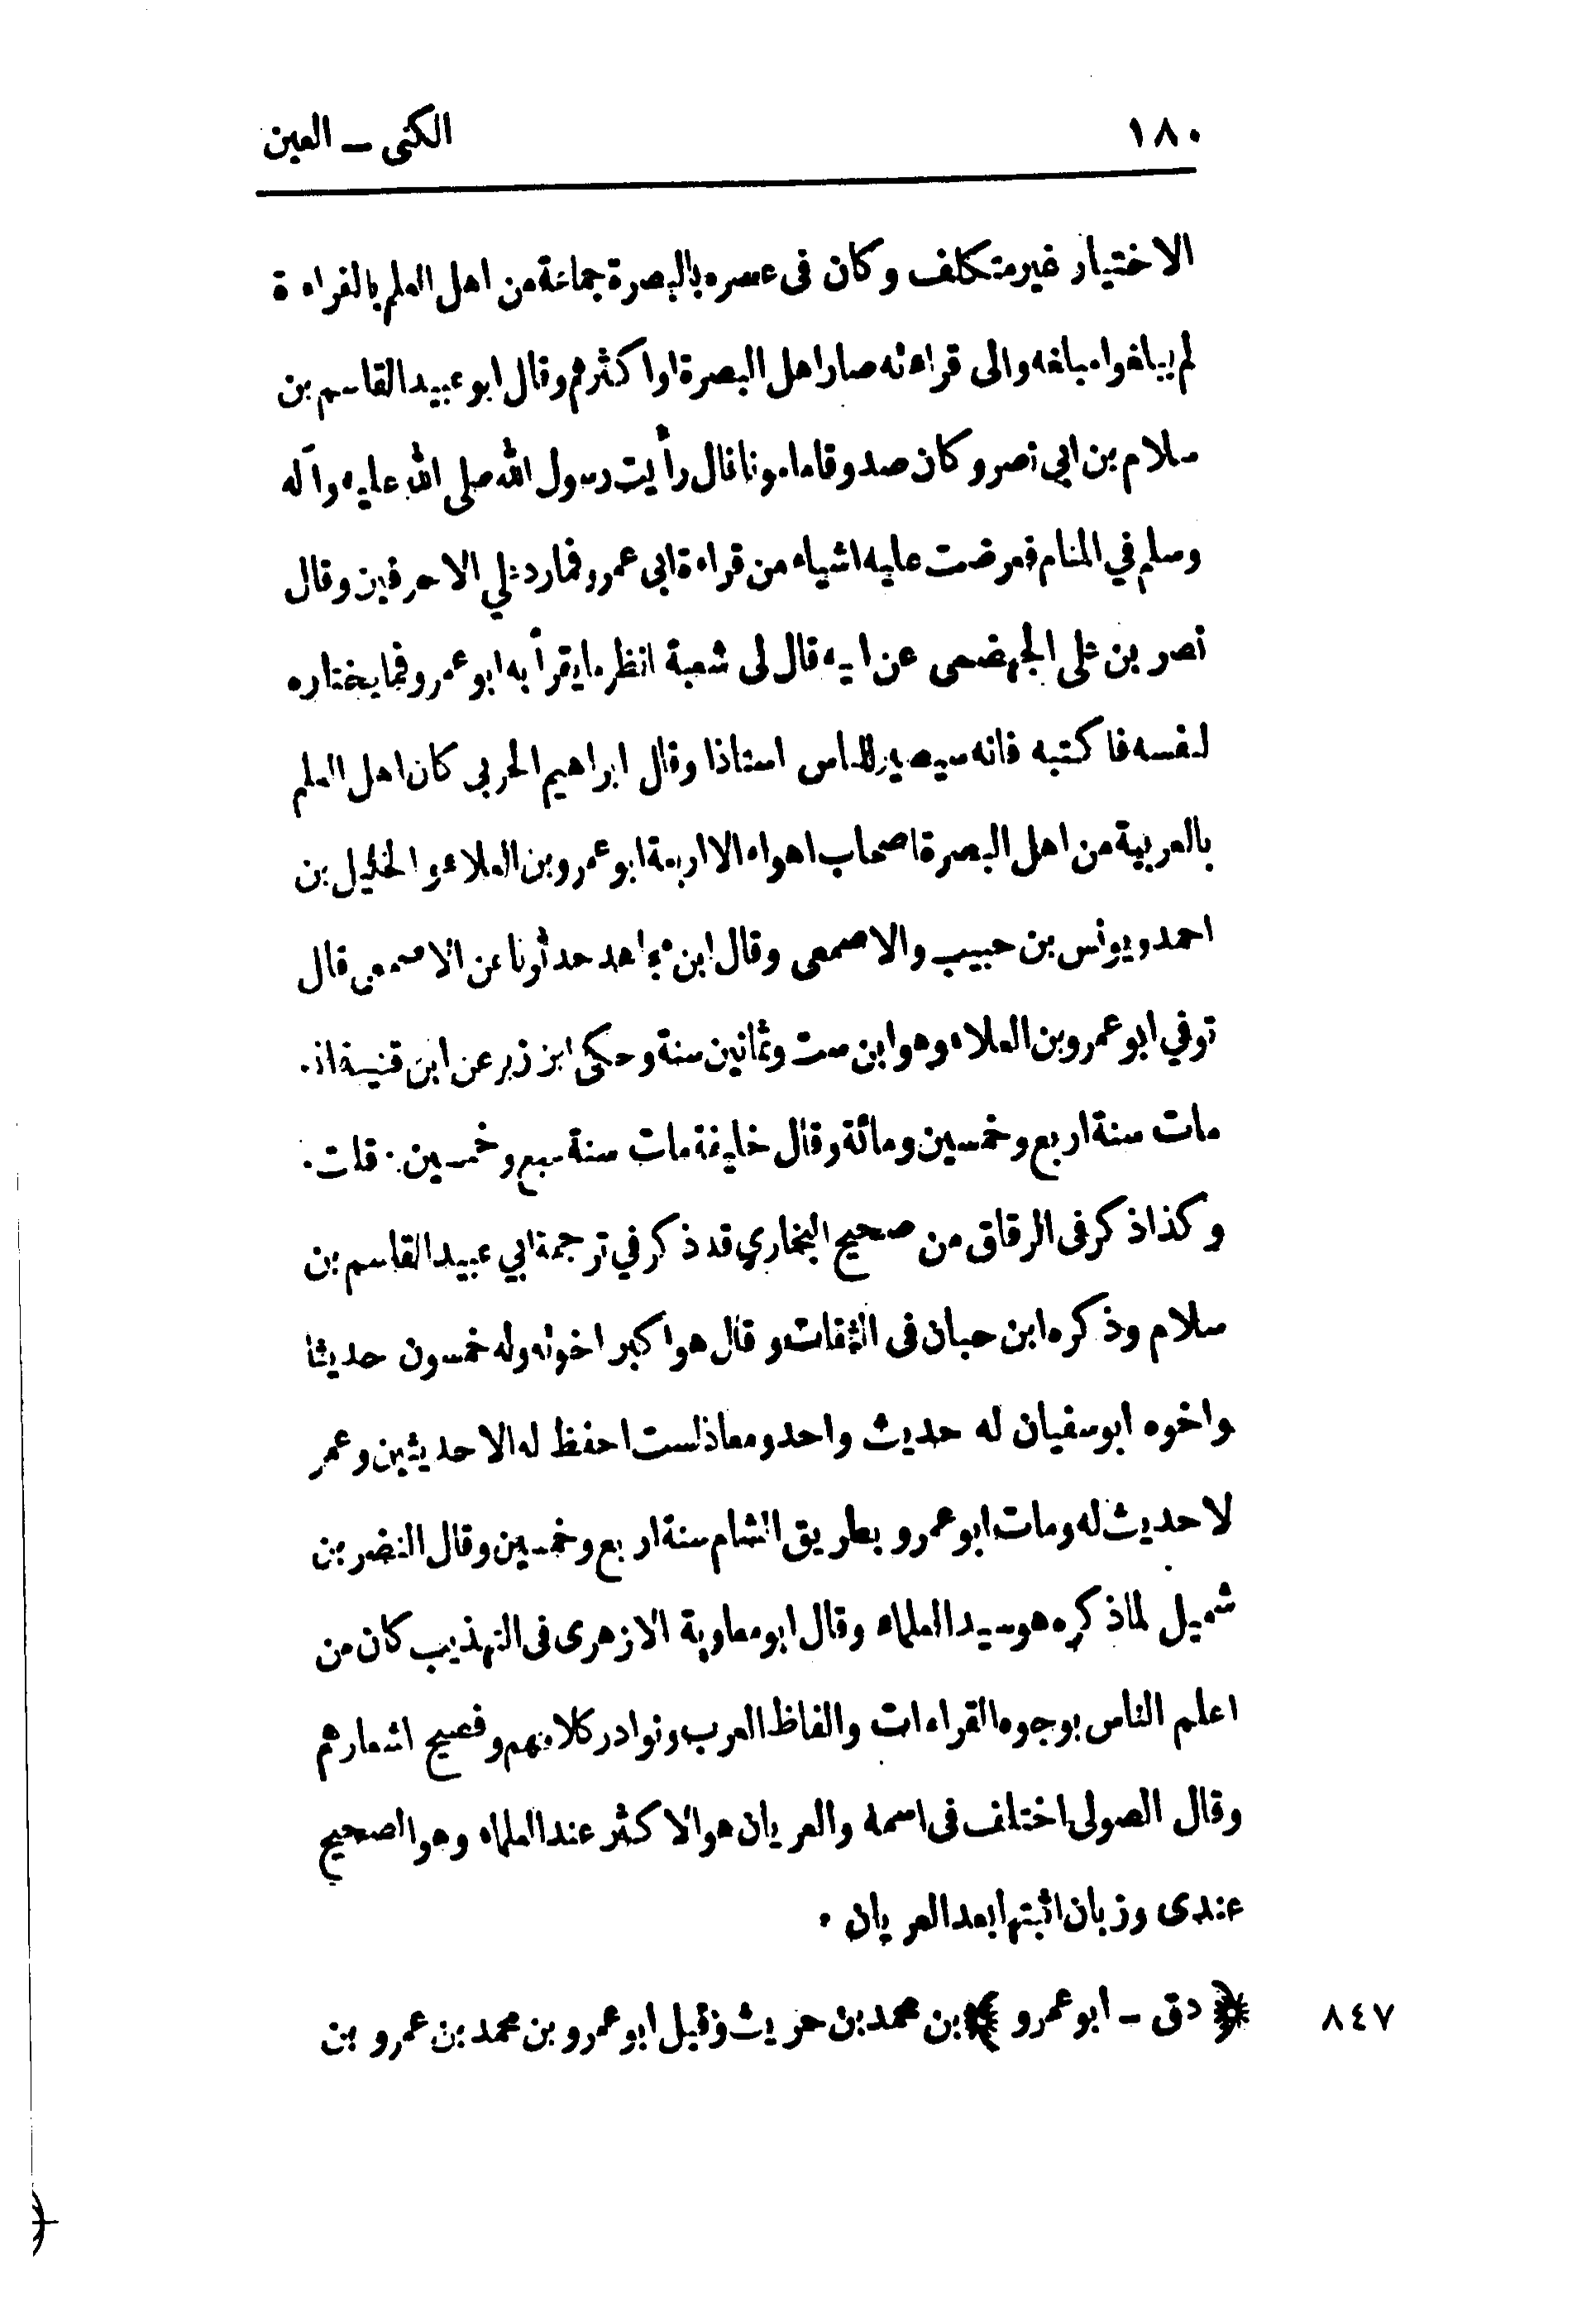 ١٨٠ الكنى ــ العين
الاختيار غير متكلف وكان فى عصره بالبصرة جماعة من اهل العلم بالقراءة
لم يبلغوا مبلغه والى قراءته صار اهل البصرة او اكثرهم وقال ابو عبيد القاسم بن
سلام بن ابى نصر وكان صدوقا مامونا قال رأيت رسول الله صلى الله عليه وآله
وسلم في المنام فعرضت عليه اشياء من قراءة ابى عمرو فمارد علي الا حرفين وقال
نصر بن على الجهضمى عن ابيه قال لى شعبة انظر ما يقرأ به ابو عمرو فما يختاره
لنفسه فاكتبه فانه سيصير للناس استاذا وقال ابراهيم الحربى كان اهل العلم
بالعربية من اهل البصرة اصحاب اهواء الا اربعة ابو عمرو بن العلاء و الخليل بن
احمد ويونس بن حبيب والاصمعى وقال ابن مجاهد حدثونا عن الاصمعى قال
توفي ابو عمرو بن العلاء وهو ابن ست وثمانين سنة وحكى ابن زبر عن ابن قتيبة انه
مات سنة اربع وخمسين ومائة وقال خليفة مات سنة سبع وخمسين · قلت ·
وكذا ذكر فى الرقاق من صحيح البخاري قد ذكر في ترجمة ابي عبيد القاسم بن
سلام وذكره ابن حبان فى الثقات و قال هو اكبر اخوته وله خمسون حديثا
واخوه ابو سفيان له حديث واحد ومعاذ لست احفظ له الا حديثين وعمر
لا حديث له ومات ابو عمرو بطريق الشام سنة اربع وخمسين وقال النضر بن
شميل لما ذكره هو سيد العلماء وقال ابو معاوية الازهرى فى التهذيب كان من
اعلم الناس بوجوه القراءات والفاظ العرب ونوادر كلامهم وفصيح اشعارهم
وقال الصولى اختلف فى اسمه والعريان هو الاكثر عند العلماء وهو الصحيح
عندى وزبان اثبتها بعد العريان ·
٨٤٧ ﴿ دق ــ ابو عمرو ﴾ بن محمد بن حريث وقيل ابو عمرو بن محمد بن عمرو بن